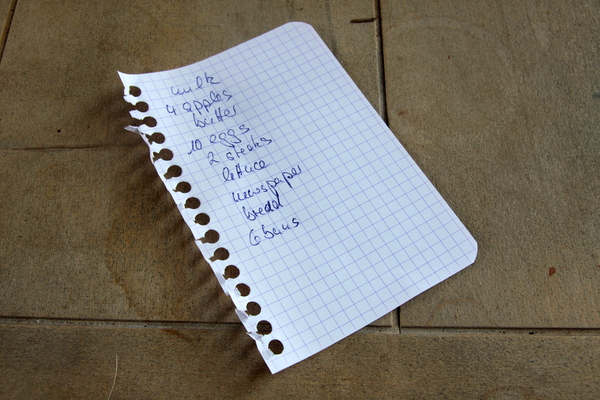 milk
4 apples
butter
10 eggs
2 steaks
lettuce
newspaper
bread
6 buns